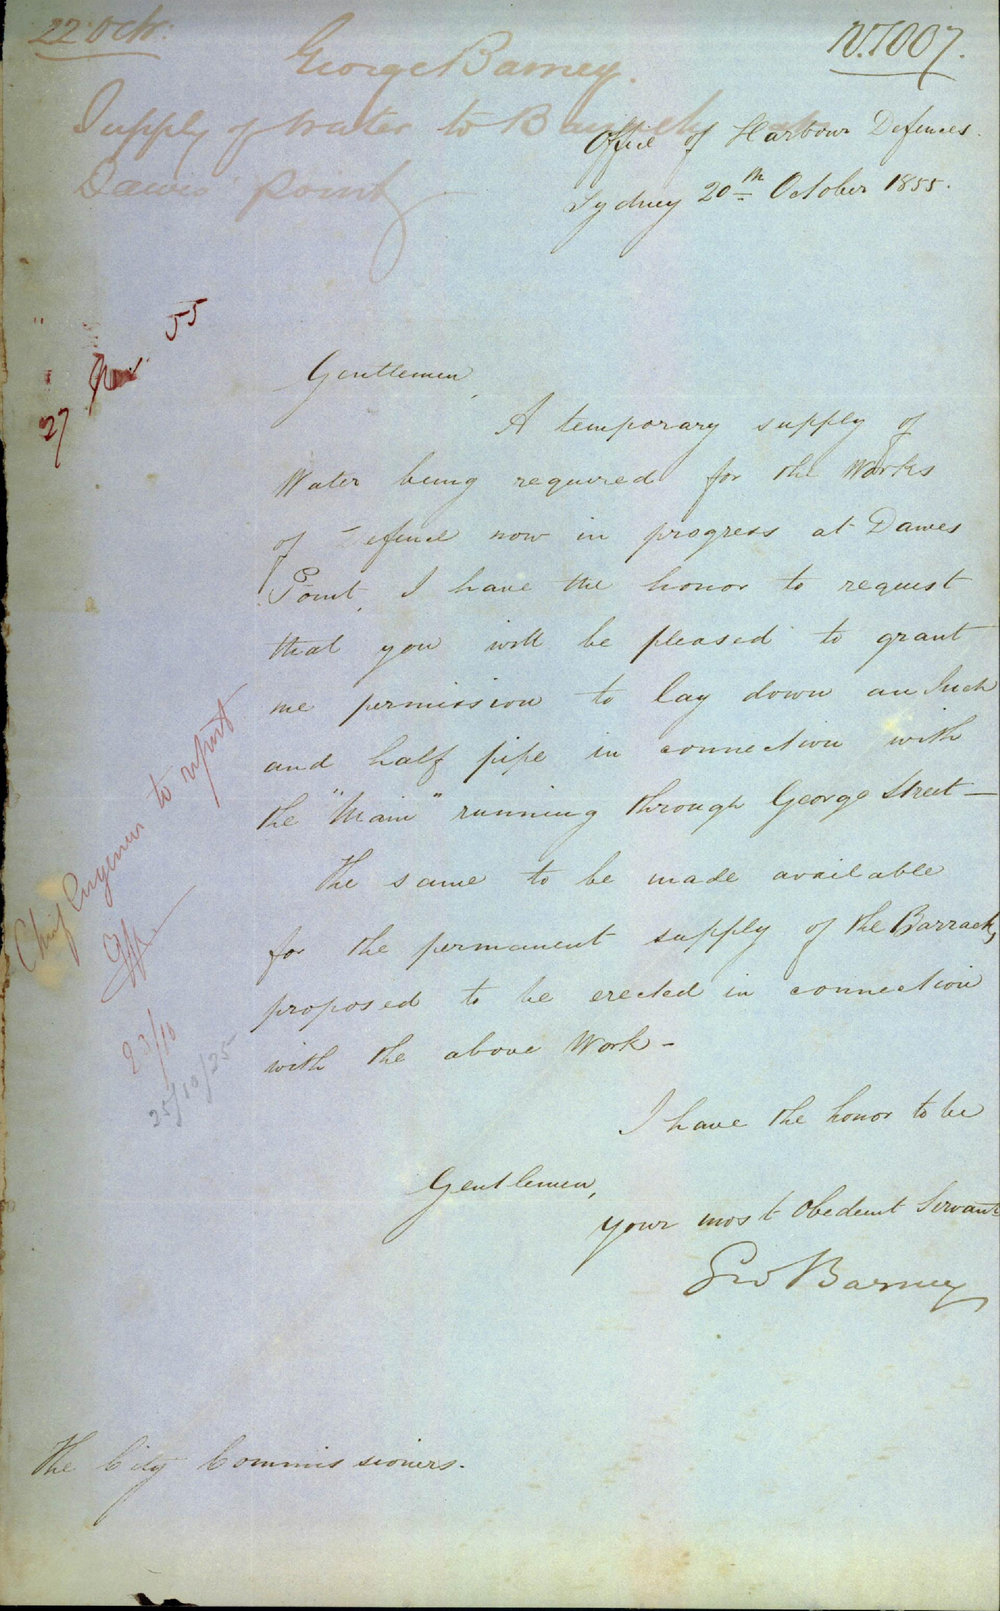 22 Oct.
No. 1007.
George Barney.
Supply of Water to
Dawes' Point
Office of Harbour Defences.
Sydney 20th October 1855.
27 Nov. 55
Gentlemen,
A temporary supply of
Water being required for the Works
of Defence now in progress at Dawes
Point, I have the honor to request
that you will be pleased to grant
me permission to lay down an Inch
and half pipe in connection with
the "Main" running through George Street —
The same to be made available
for the permanent supply of the Barracks,
proposed to be erected in connection
with the above Work -
Chief Engineer to report
23/10
25/10/55
I have the honor to be
Gentlemen,
your most Obedient Servant
Geo Barney
The City Commissioners.